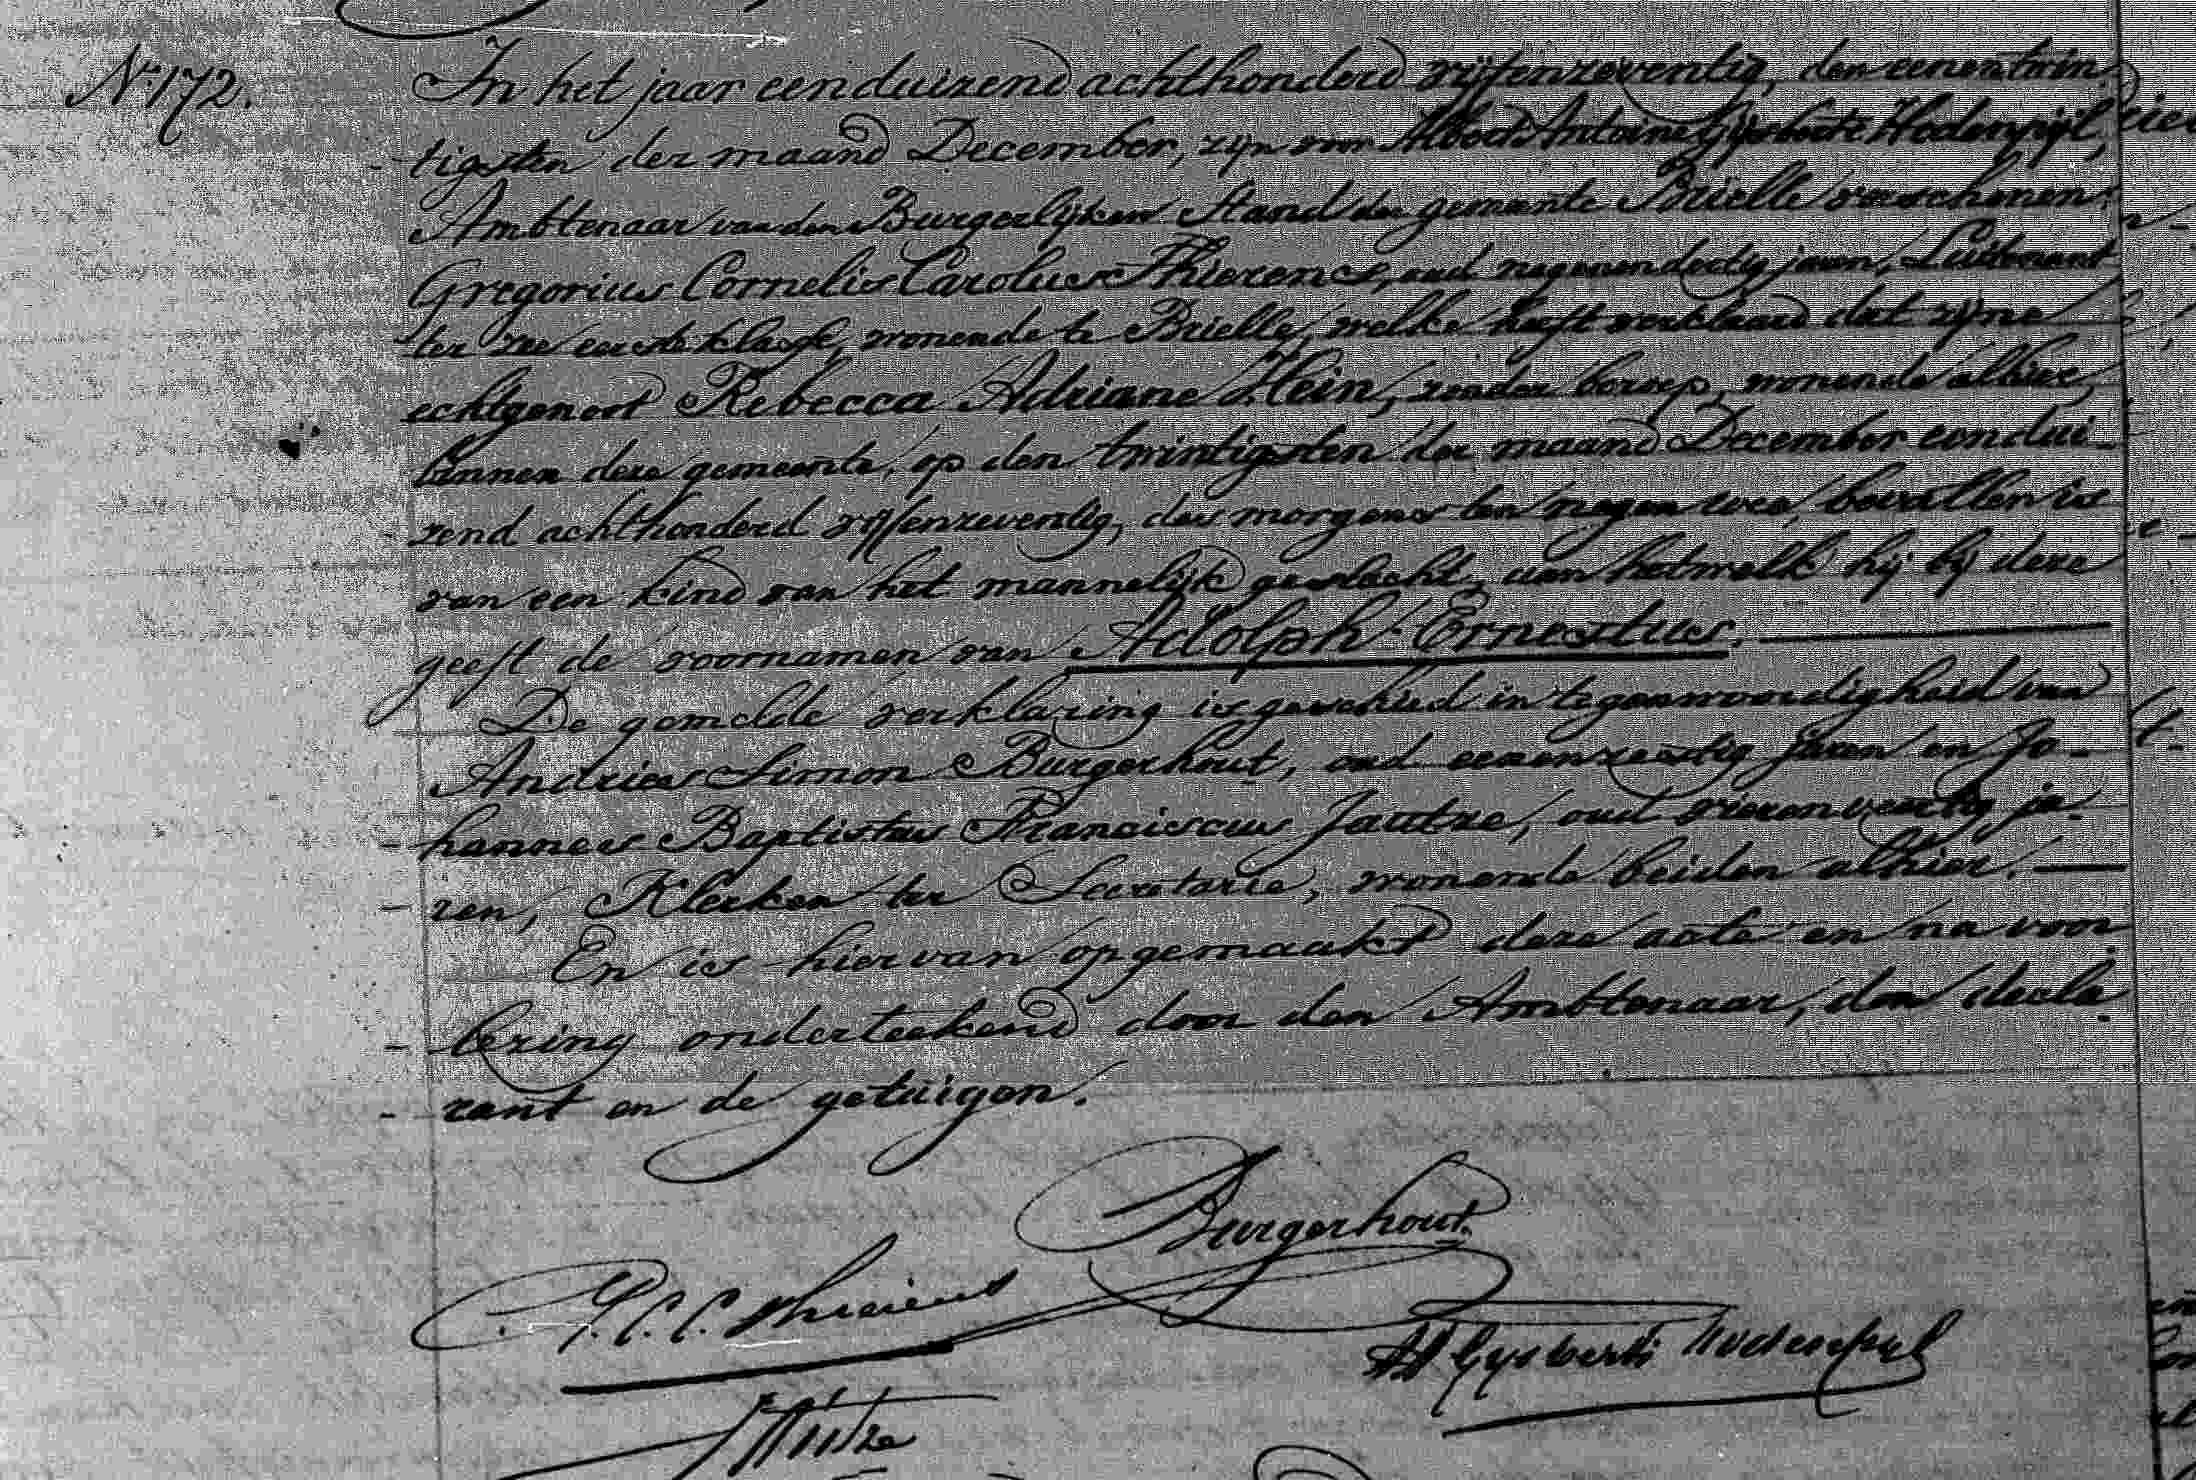 No. 172.
In het jaar eenduizend achthonderd vijfenzeventig, den eenentwin
tigsten der maand December, zijn voor Albert Antoine Gijsberti Hodenpijl,
Ambtenaar van den Burgerlijken Stand der gemeente Brielle verschenen:
Gregorius Cornelis Carolus Thierens, oud negenendertig jaren, Luitenant
ter zee eerste klasse, wonende te Brielle, welke heeft verklaard dat zijne
echtgenoot Rebecca Adriane Hein, zonder beroep, wonende alhier,
binnen deze gemeente, op den twintigsten der maand December eendui-
zend achthonderd vijfenzeventig, des morgens ten negen ure, bevallen is
van een kind van het mannelijk geslacht, aan hetwelk hij bij deze
geeft de voornamen van Adolph Ernestus.
De gemelde verklaring is geschied in tegenwoordigheid van
Andries Simon Burgerhout, oud eenenzestig jaren en Jo-
hannes Baptistus Franciscus Jautze, oud vierenveertig ja-
ren, Klerken ter Secretarie, wonende beiden alhier.
En is hiervan opgemaakt deze acte en na voor
lezing onderteekend door den Ambtenaar, den decla-
rant en de getuigen.
Burgerhout
G. C. C. Thierens
AA Gijsberti Hodenpijl